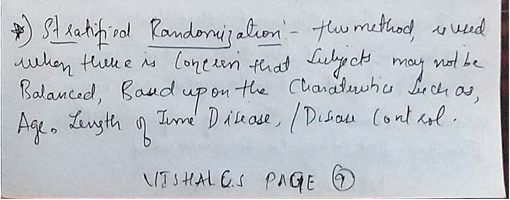 *) Stratified Randomization:- this method, is used
when there is Concern that Subjects may not be
Balanced, Based upon the Charactristics Such as,
Age. Length of Time Disease, / Disease Control.
VISHAL G.S PAGE 9